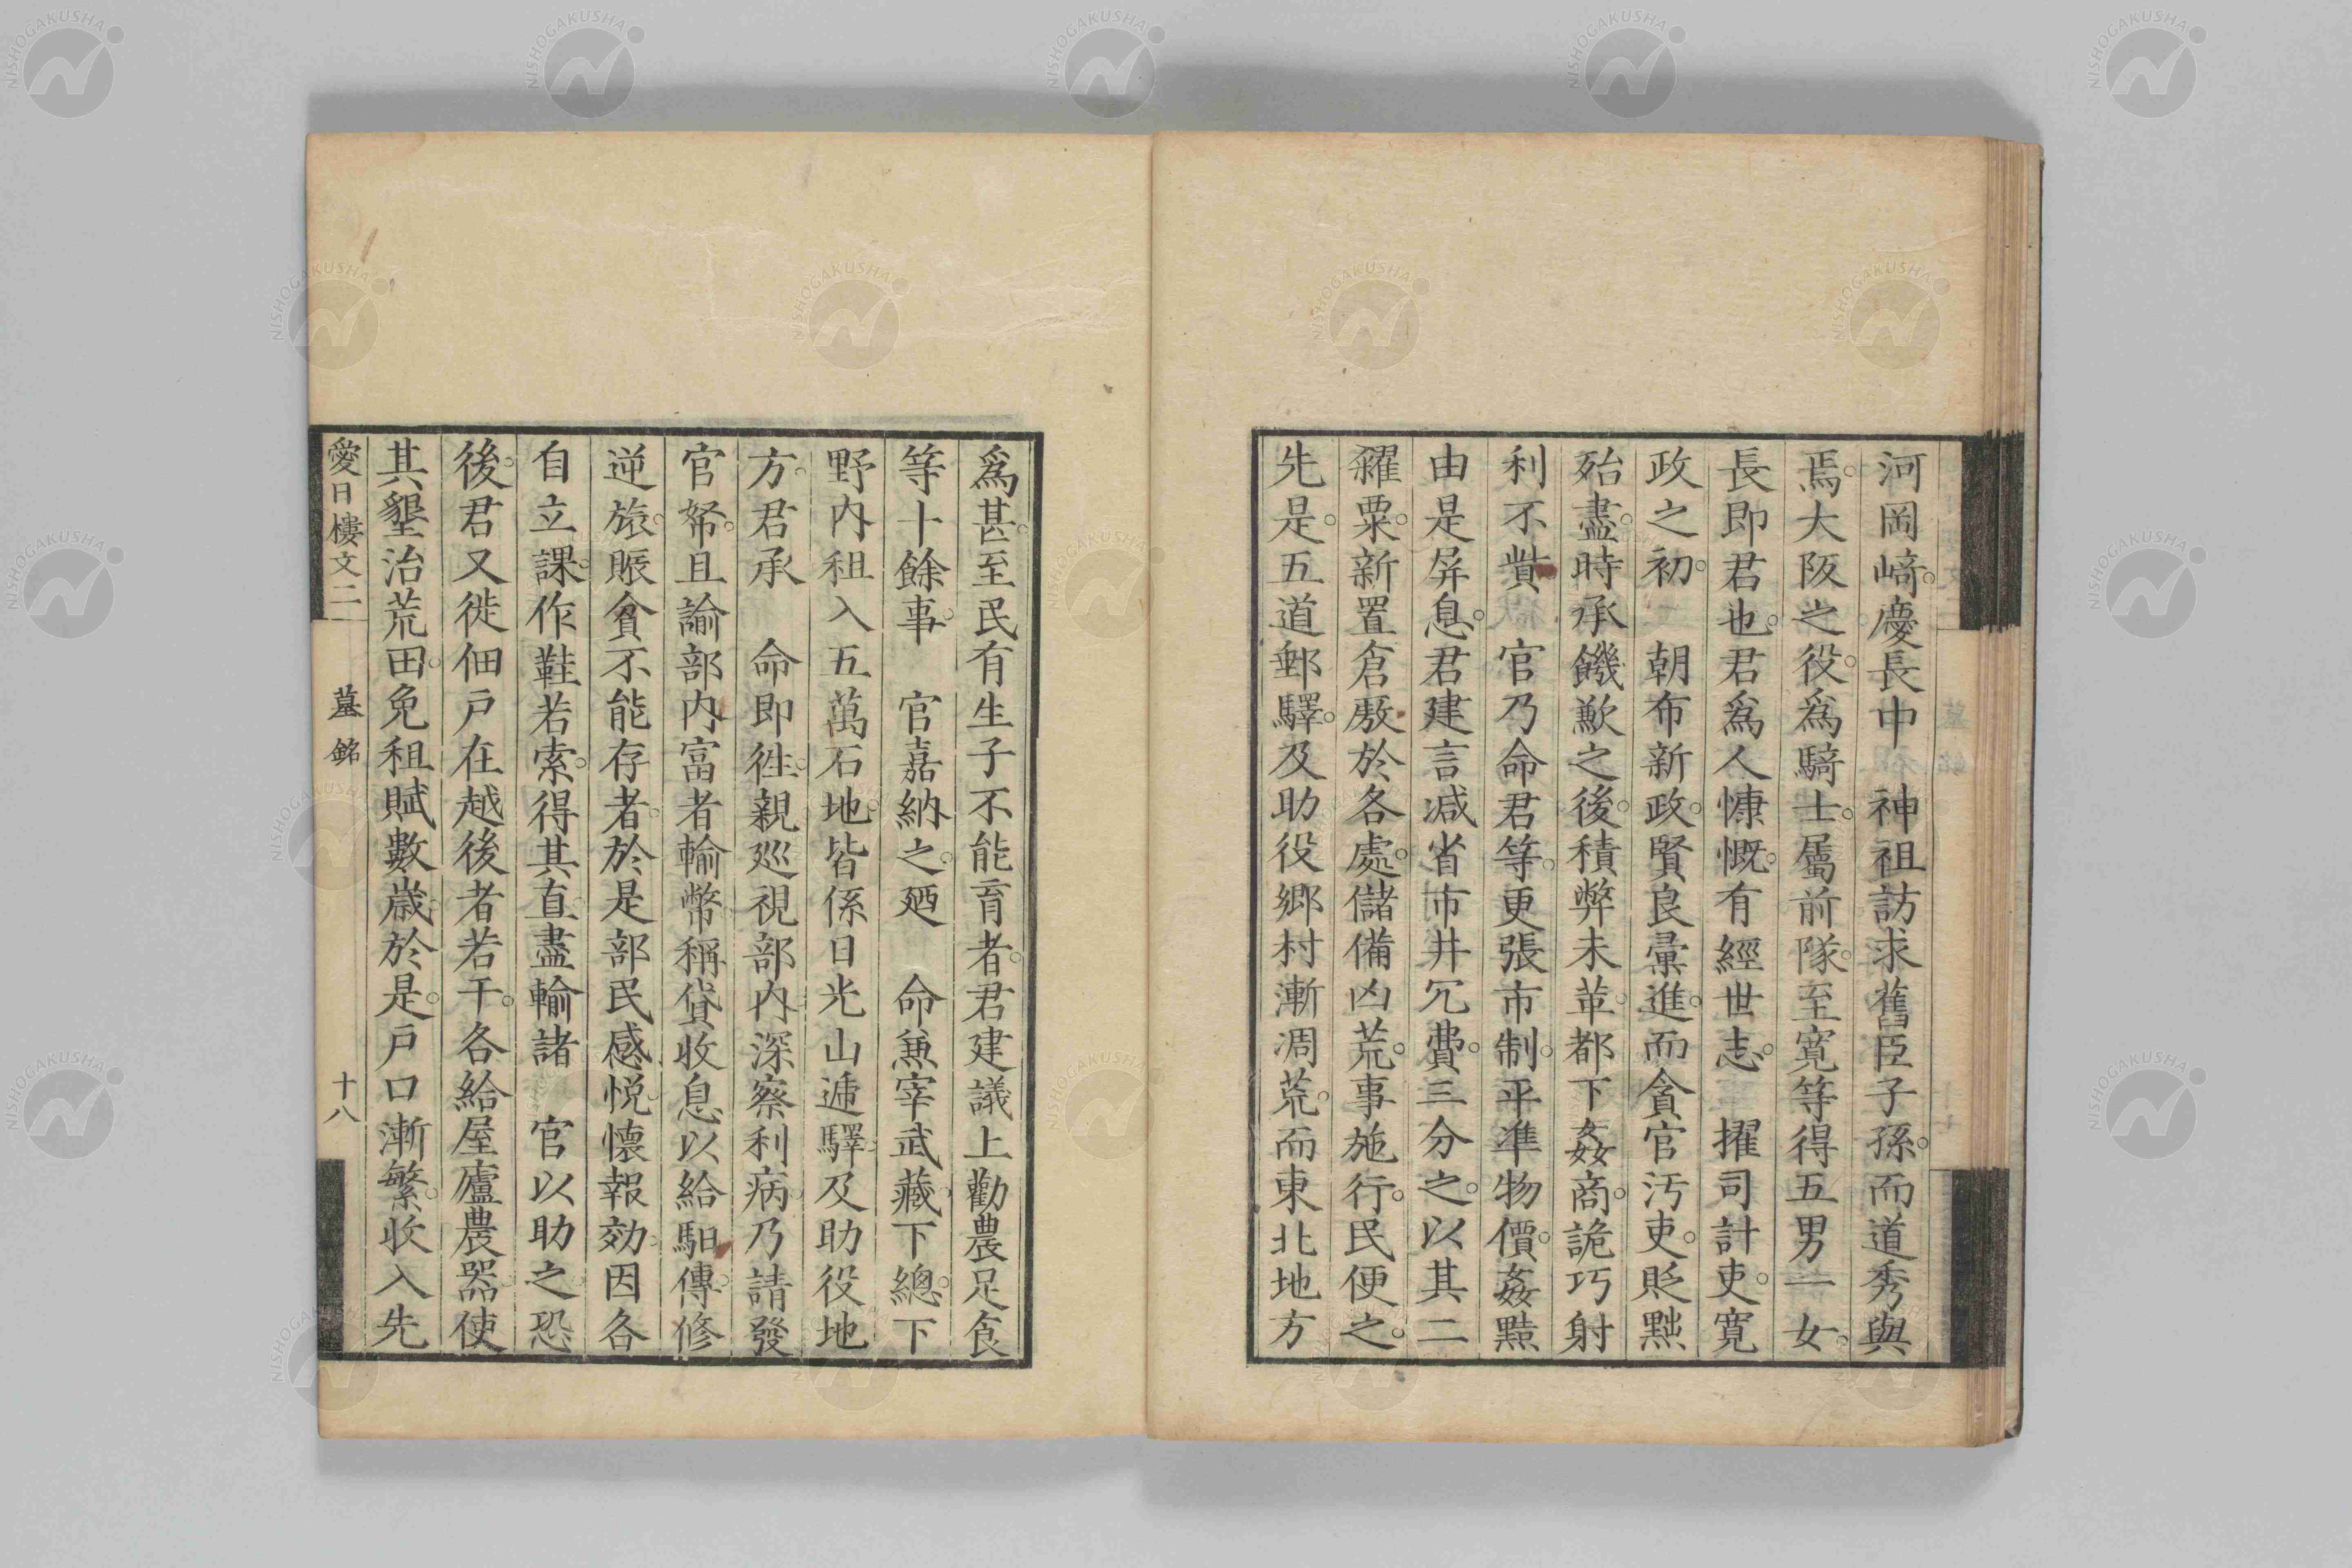 河岡﨑。慶長中　神祖訪求舊臣子孫。而道秀與
焉。大阪之役。爲騎士。屬前隊。至寬等得五男一女。
長即君也。君爲人慷慨。有經世志。　擢司計吏。寬
政之初。　朝布新政。賢良彙進。而貪官汚吏。貶黜
殆盡。時承饑歉之後。積弊未革。都下姦商。詭巧射
利不貲　官乃命君等。更張市制。平準物價。姦黠
由是屏息。君建言減省市井冗費。三分之。以其二
糴粟。新置倉廒於各處。儲備凶荒。事施行。民便之。
先是。五道郵驛。及助役鄉村漸凋荒。而東北地方
爲甚。至民有生子不能育者。君建議上勸農足食
等十餘事。　官嘉納之。廼　命兼宰武藏。下總。下
野內租入五萬石地。皆係日光山遞驛。及助役地
方。君承　命即徃。親巡視部內。深察利病。乃請發
官帑。且諭部內富者輸幣稱貸收息以給馹傳。修
逆旅。賑貧不能存者。於是部民感悦。懷報効。因各
自立課。作鞋若索。得其直盡輸諸　官以助之。恐
後。君又徙佃戶在越後者若干。各給屋廬農器。使
其墾治荒田。免租賦數歲。於是。戶口漸繁。收入先
愛日樓文二　墓銘　十八
NISHOGAKUSHA